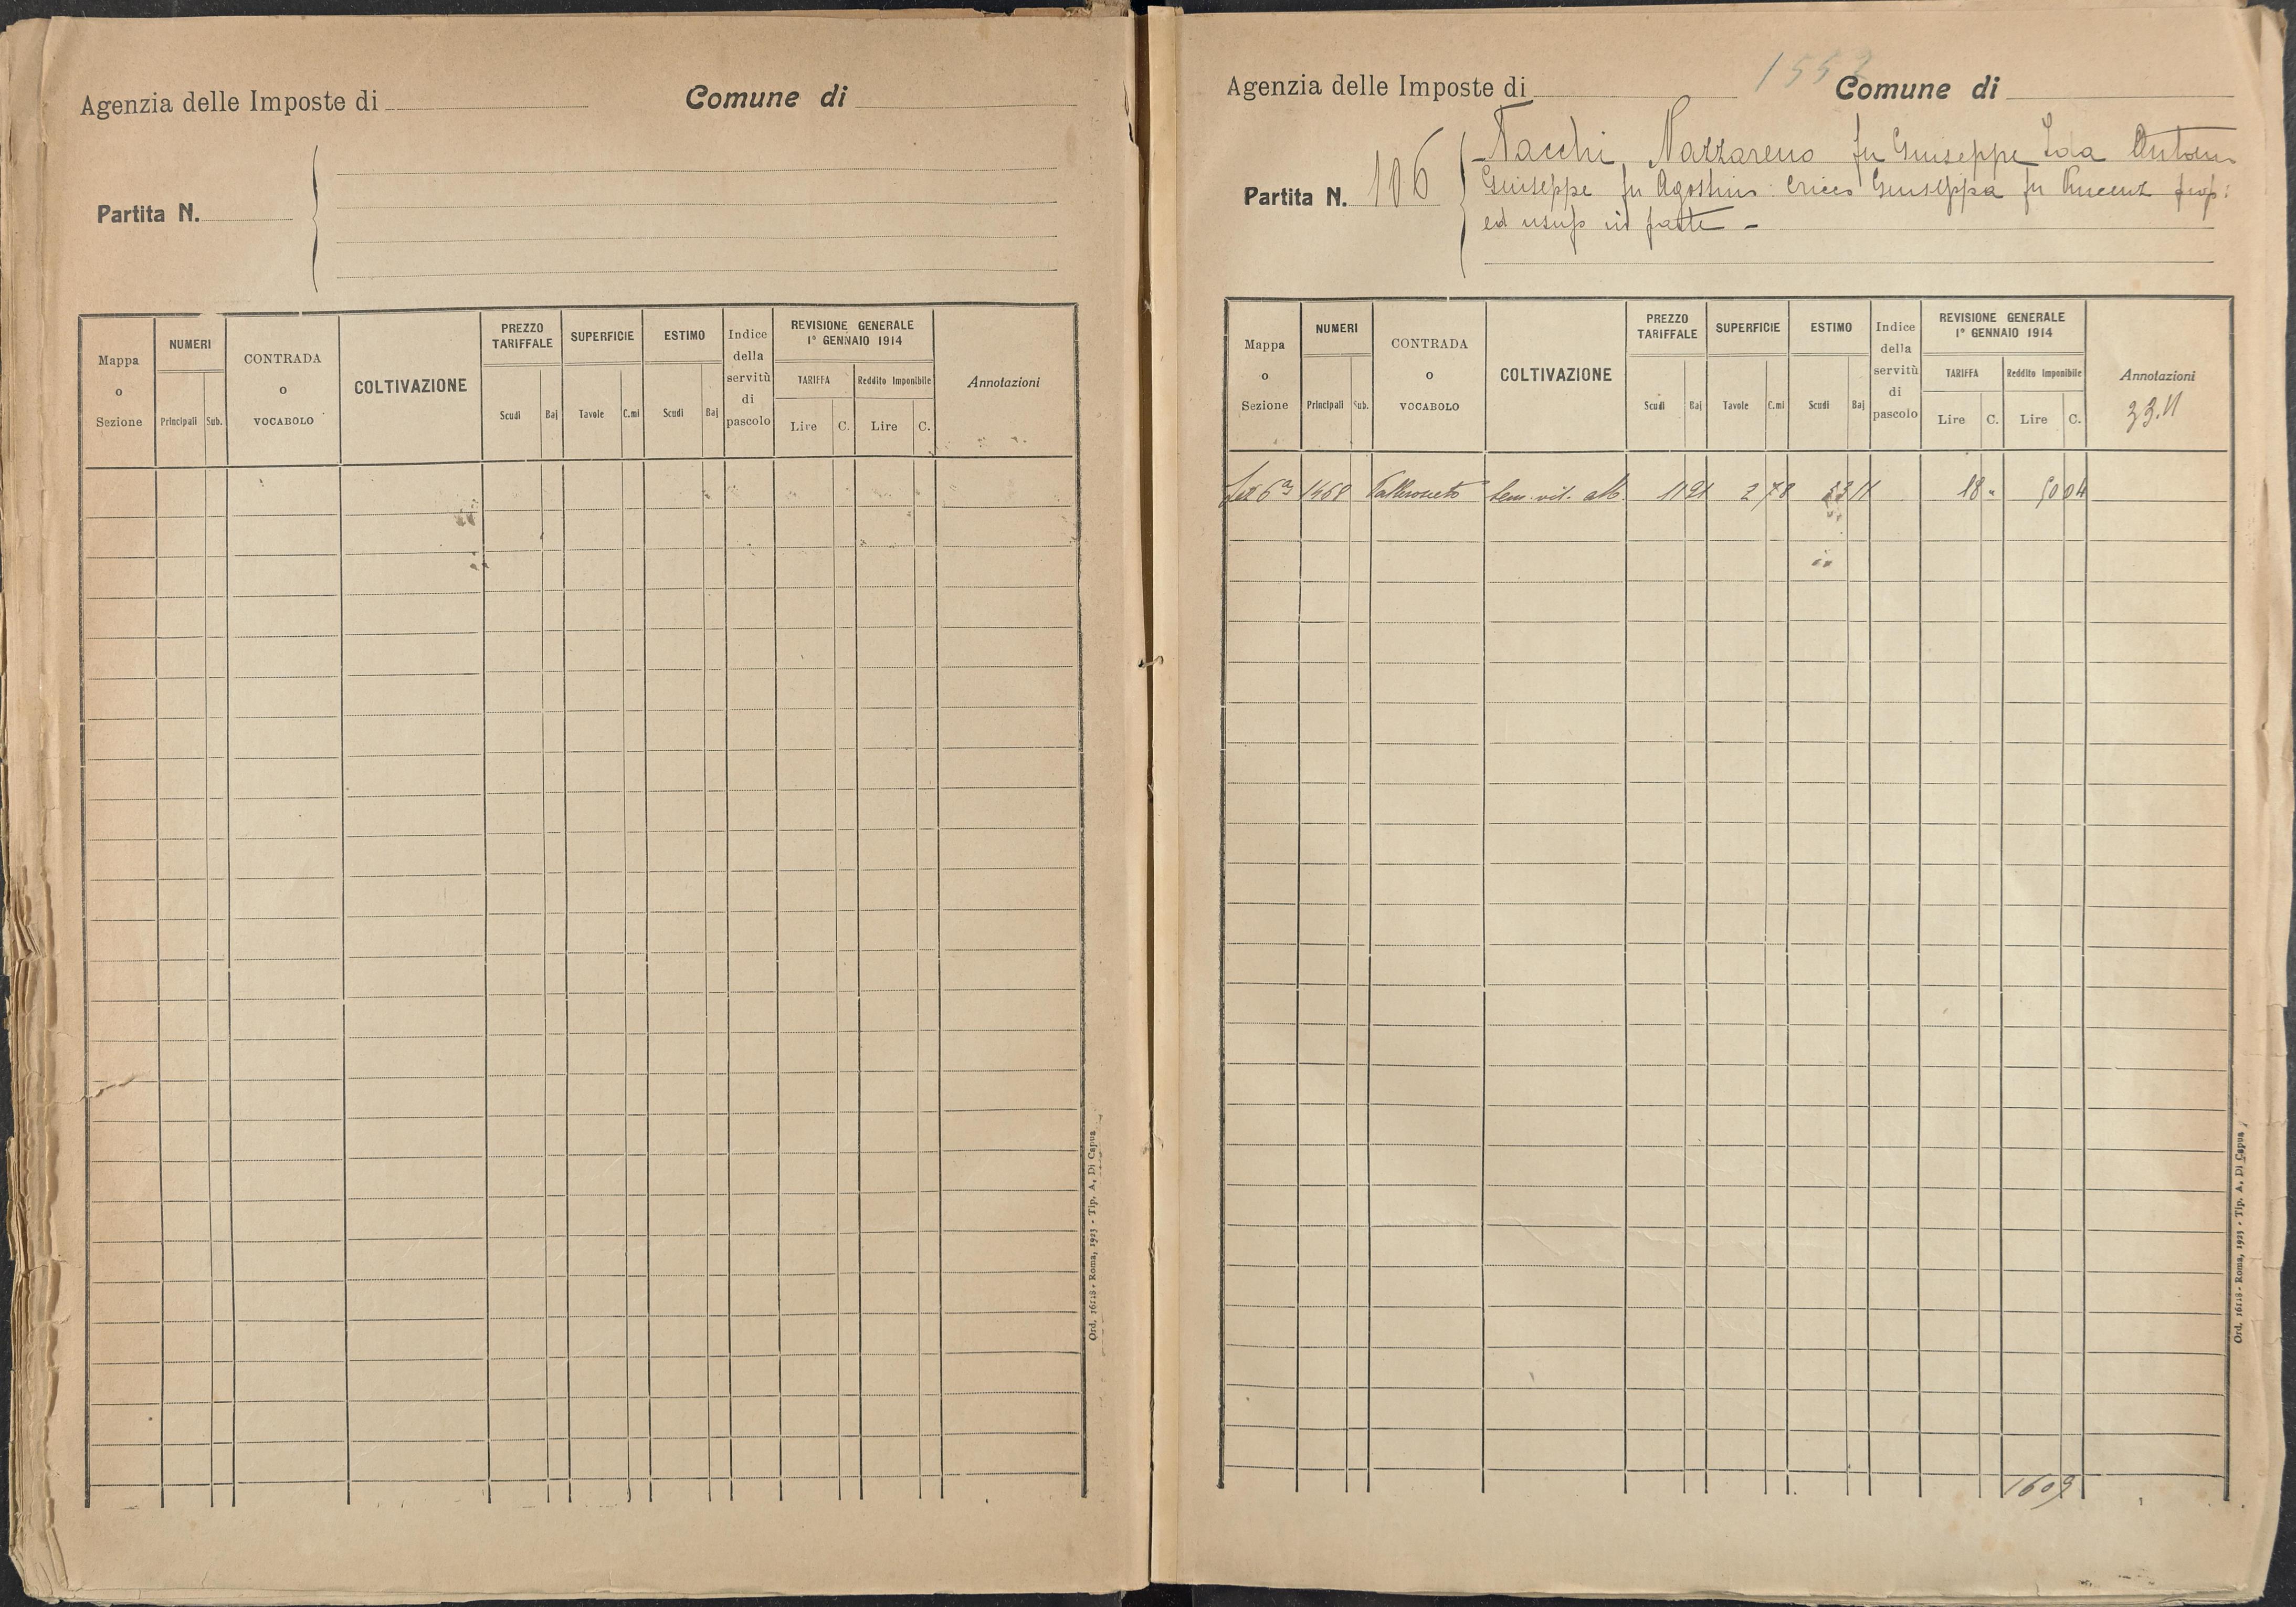 Agenzia delle Imposte di
Comune di
Partita N.
Mappa o Sezione
NUMERI
Principali Sub.
CONTRADA o VOCABOLO
COLTIVAZIONE
PREZZO TARIFFALE
Scudi Baj
SUPERFICIE
Tavole C.mi
ESTIMO
Scudi Baj
Indice della servitù di pascolo
REVISIONE GENERALE
1° GENNAIO 1914
TARIFFA Reddito Imponibile
Lire C. Lire C.
Annotazioni
Ord. 16118 - Roma, 1923 - Tip. A. Di Capua
1552
Agenzia delle Imposte di
Comune di
Partita N. 106
Tacchi Nazzareno fu Giuseppe Ida Anton
Giuseppe fu Agostino: Giuseppa fu Vincenz prop:
ed usufr in parte -
Mappa o Sezione
NUMERI
Principali Sub.
CONTRADA o VOCABOLO
COLTIVAZIONE
PREZZO TARIFFALE
Scudi Baj
SUPERFICIE
Tavole C.mi
ESTIMO
Scudi Baj
Indice della servitù di pascolo
REVISIONE GENERALE
1° GENNAIO 1914
TARIFFA Reddito Imponibile
Lire C. Lire C.
Annotazioni
33.11
Sez 6ª 1468 Sem. vit. alb. 11 91 2 78 33 11 18 " 50 04
1609
Ord. 16118 - Roma, 1923 - Tip. A. Di Capua